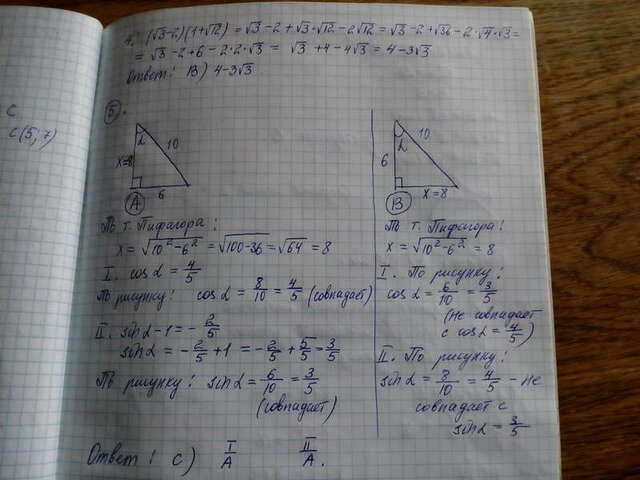 4. (√3-2)(1+√12) = √3-2+√3·√12-2√12 = √3-2+√36-2·√4·√3=
= √3-2+6-2·2·√3 = √3+4-4√3 = 4-3√3
Ответ: B) 4-3√3
C
C(5; 7)
5.
α 10
x=8
6
A
По т. Пифагора:
x = √10²-6² = √100-36 = √64 = 8
I. cos α = 4/5
По рисунку: cos α = 8/10 = 4/5 (совпадает)
II. sin α - 1 = - 2/5
sin α = - 2/5 + 1 = - 2/5 + 5/5 = 3/5
По рисунку: sin α = 6/10 = 3/5
(совпадает)
10
6 α
x=8
B
По т. Пифагора:
x = √10²-6² = 8
I. По рисунку:
cos α = 6/10 = 3/5
(не совпадает
с cos α = 4/5)
II. По рисунку:
sin α = 8/10 = 4/5 - не
совпадает с
sin α = 3/5
Ответ: C) I/A II/A.